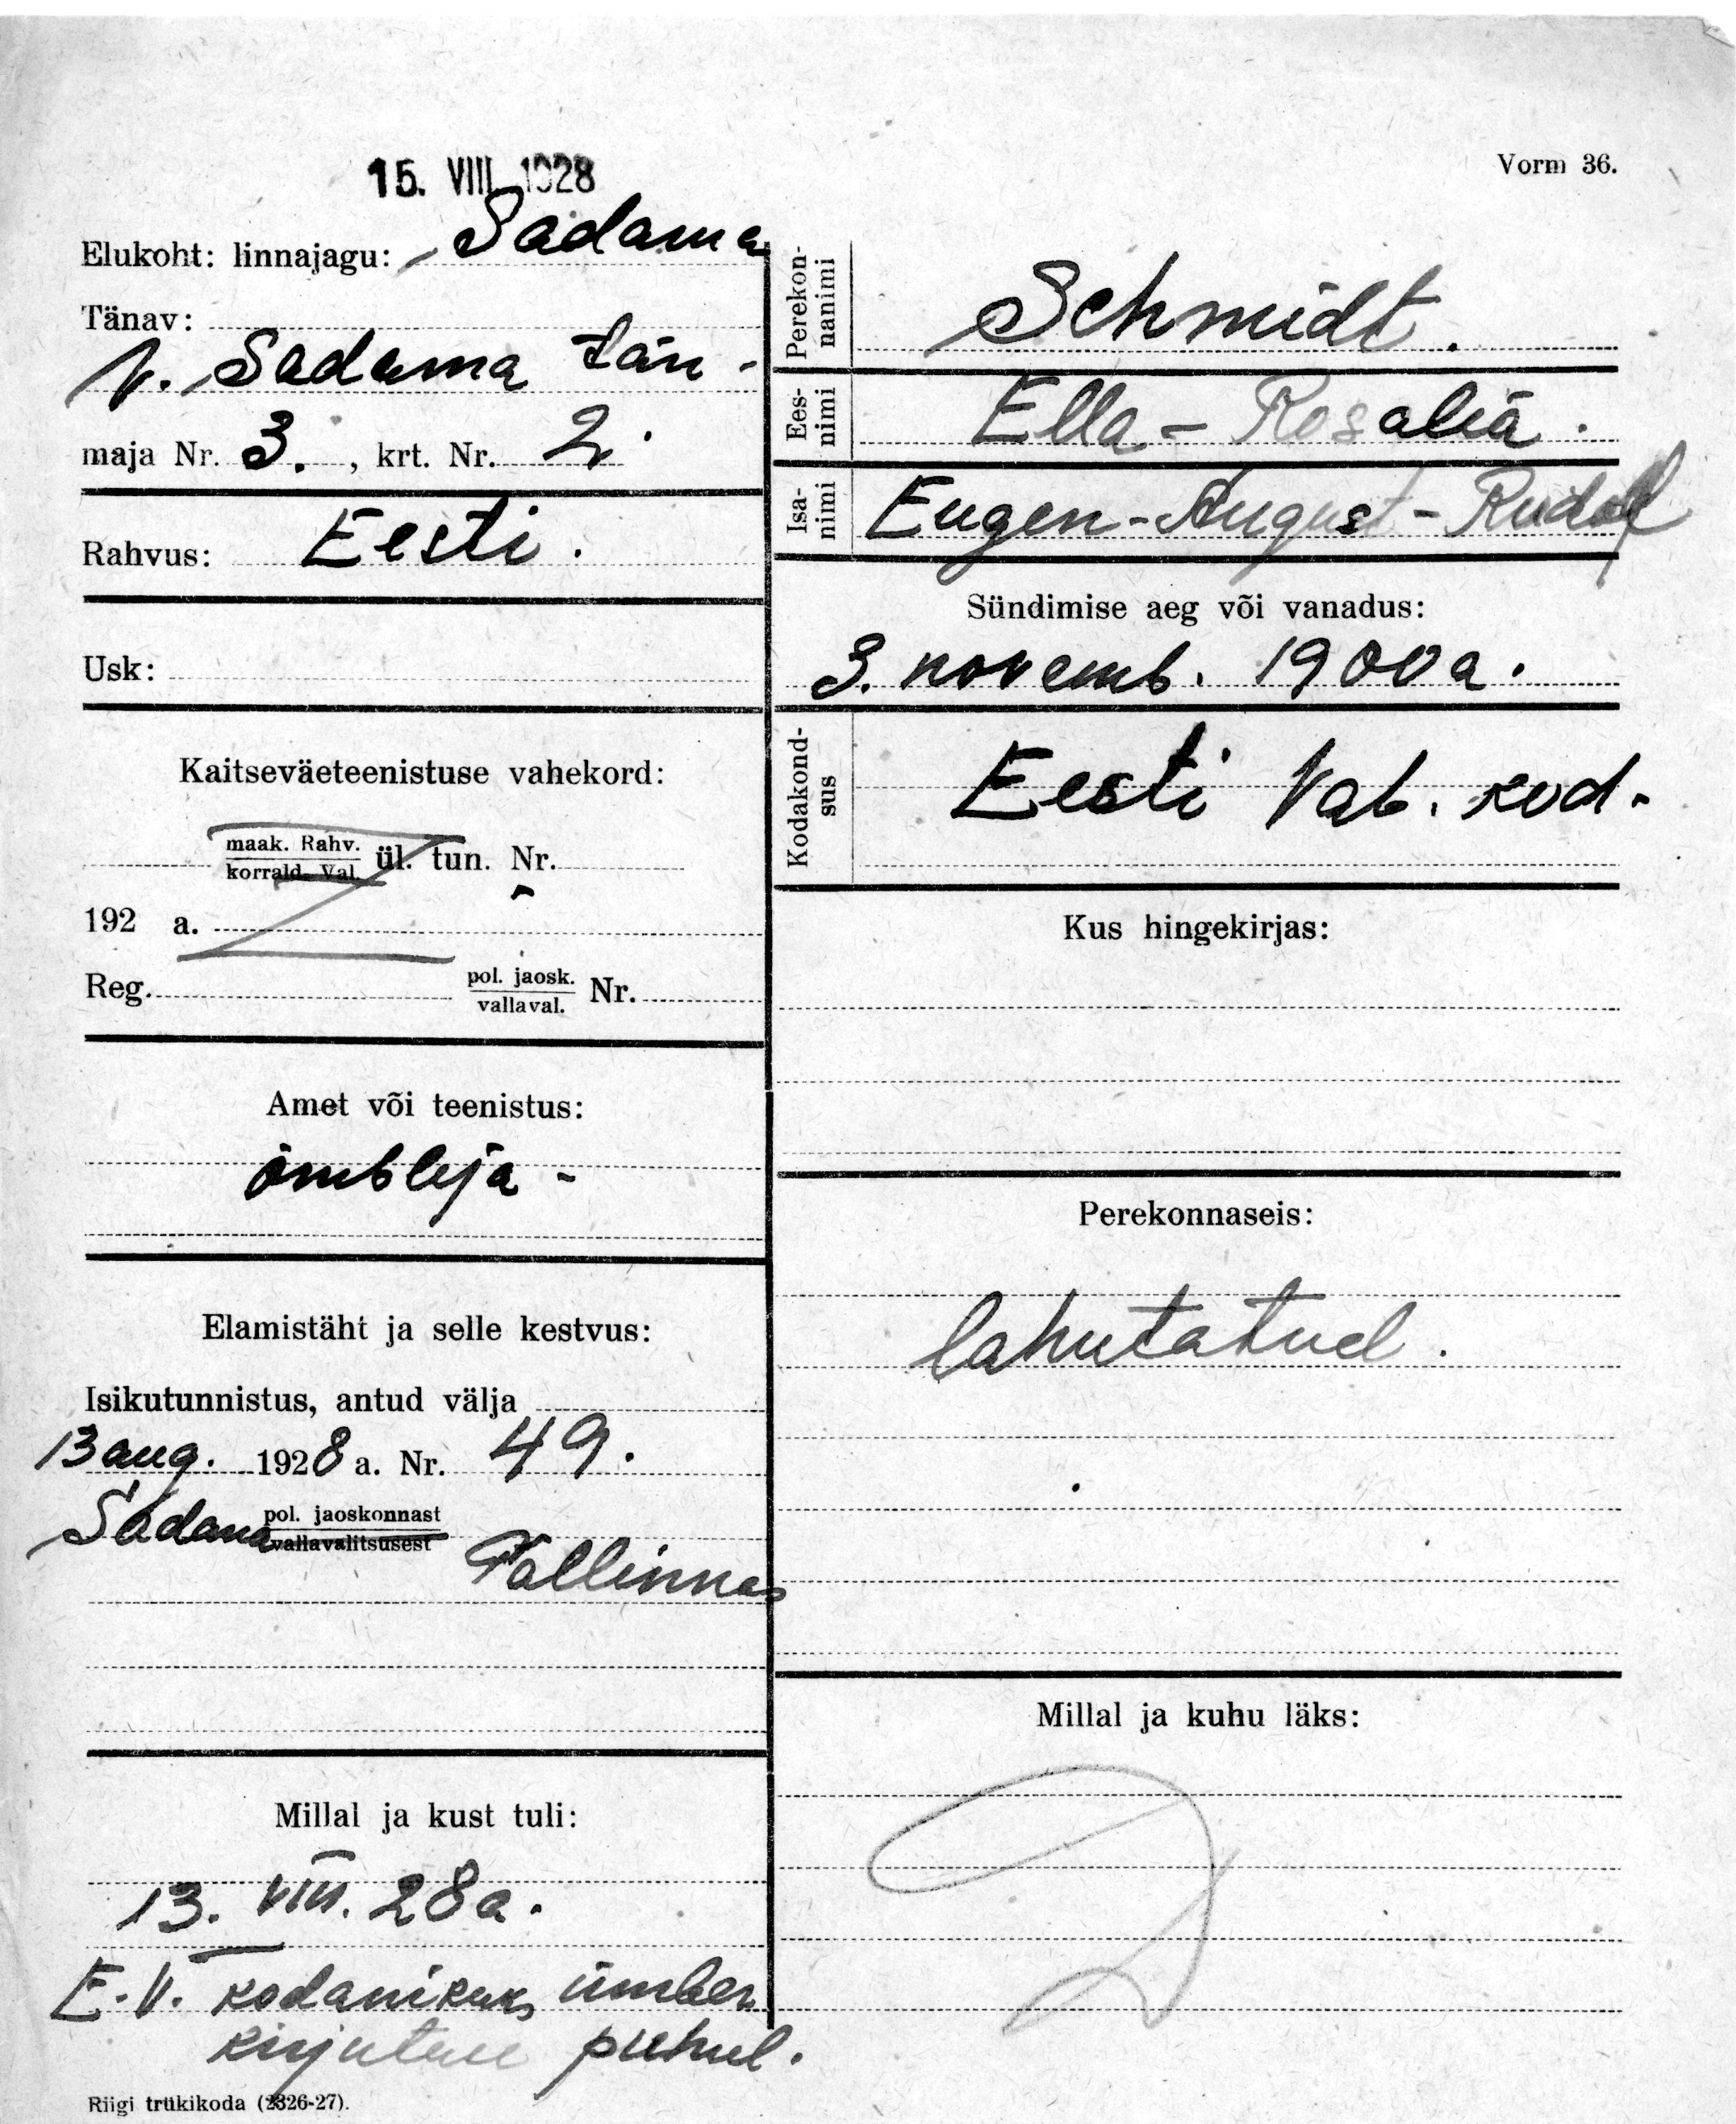 15. VIII 1928
Vorm 36.
Elukoht: linnajagu: Sadama
Tänav:
V. Sadama tän-
maja Nr. 3., krt. Nr. 2.
Rahvus: Eesti.
Usk:
Kaitseväeteenistuse vahekord:
maak. Rahv.
korrald. Val. ül. tun. Nr.
192 a.
Reg. pol. jaosk.
vallaval. Nr.
Amet või teenistus:
õmbleja -
Elamistäht ja selle kestvus:
Isikutunnistus, antud välja
13 aug. 1928 a. Nr. 49.
Sadama pol. jaoskonnast
vallavalitsusest
Tallinnas
Millal ja kust tuli:
13. VIII. 28 a.
E.V. kodanikuks ümber
kirjutuse puhul.
Riigi trükikoda (2326-27).
Perekon-
nanimi
Schmidt.
Ees-
nimi
Ella - Rosalia.
Isa-
nimi
Eugen-August-Rudolf
Sündimise aeg või vanadus:
3. novemb. 1900 a.
Kodakond-
sus
Eesti Vab. kod.
Kus hingekirjas:
Perekonnaseis:
lahutatud.
Millal ja kuhu läks: